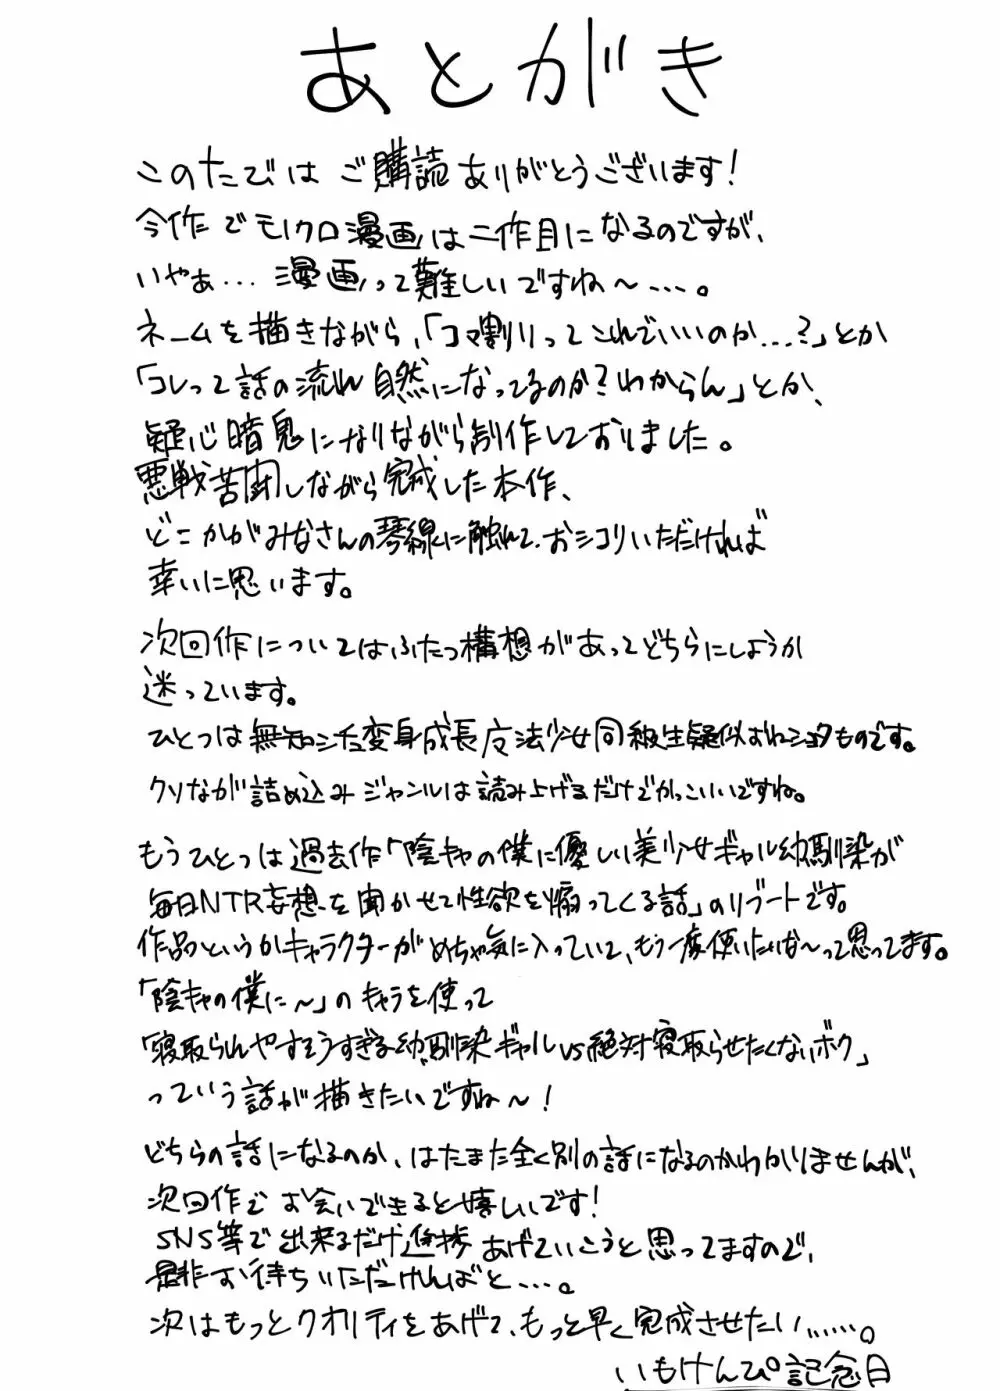 あとがき
このたびは ご購読ありがとうございます!
今作でモノクロ漫画は二作目になるのですが、
いやぁ... 漫画って難しいですね〜....。
ネームを描きながら、「コマ割りってこれでいいのか...?」とか
「コレって話の流れ自然になってるのか?わからん」とか、
疑心暗鬼になりながら制作しておりました。
悪戦苦闘しながら完成した本作、
どこかがみなさんの琴線に触れて、おシコりいただければ
幸いに思います。
次回作についてはふたつ構想があってどちらにしようか
迷っています。
ひとつは無知シチュ変身成長魔法少女同級生疑似おねショタものです。
クソなが詰め込みジャンルは読み上げるだけでかっこいいですね。
もうひとつは過去作「陰キャの僕に優しい美少女ギャル幼馴染が
毎日NTR妄想を聞かせて性欲を煽ってくる話」のリブートです。
作品というかキャラクターがめちゃ気に入っていて、もう一度使いたいな〜って思ってます。
「陰キャの僕に〜」のキャラを使って
「寝取られやすそうすぎる幼馴染ギャルvs絶対寝取らせたくないボク」
っていう話が描きたいですね〜!
どちらの話になるのか、はたまた全く別の話になるのかわかりませんが、
次回作でお会いできると嬉しいです!
SNS等で出来るだけ進捗あげていこうと思ってますので、
是非お待ちいただければと....。
次はもっとクオリティをあげて、もっと早く完成させたい......。
いもけんぴ記念日